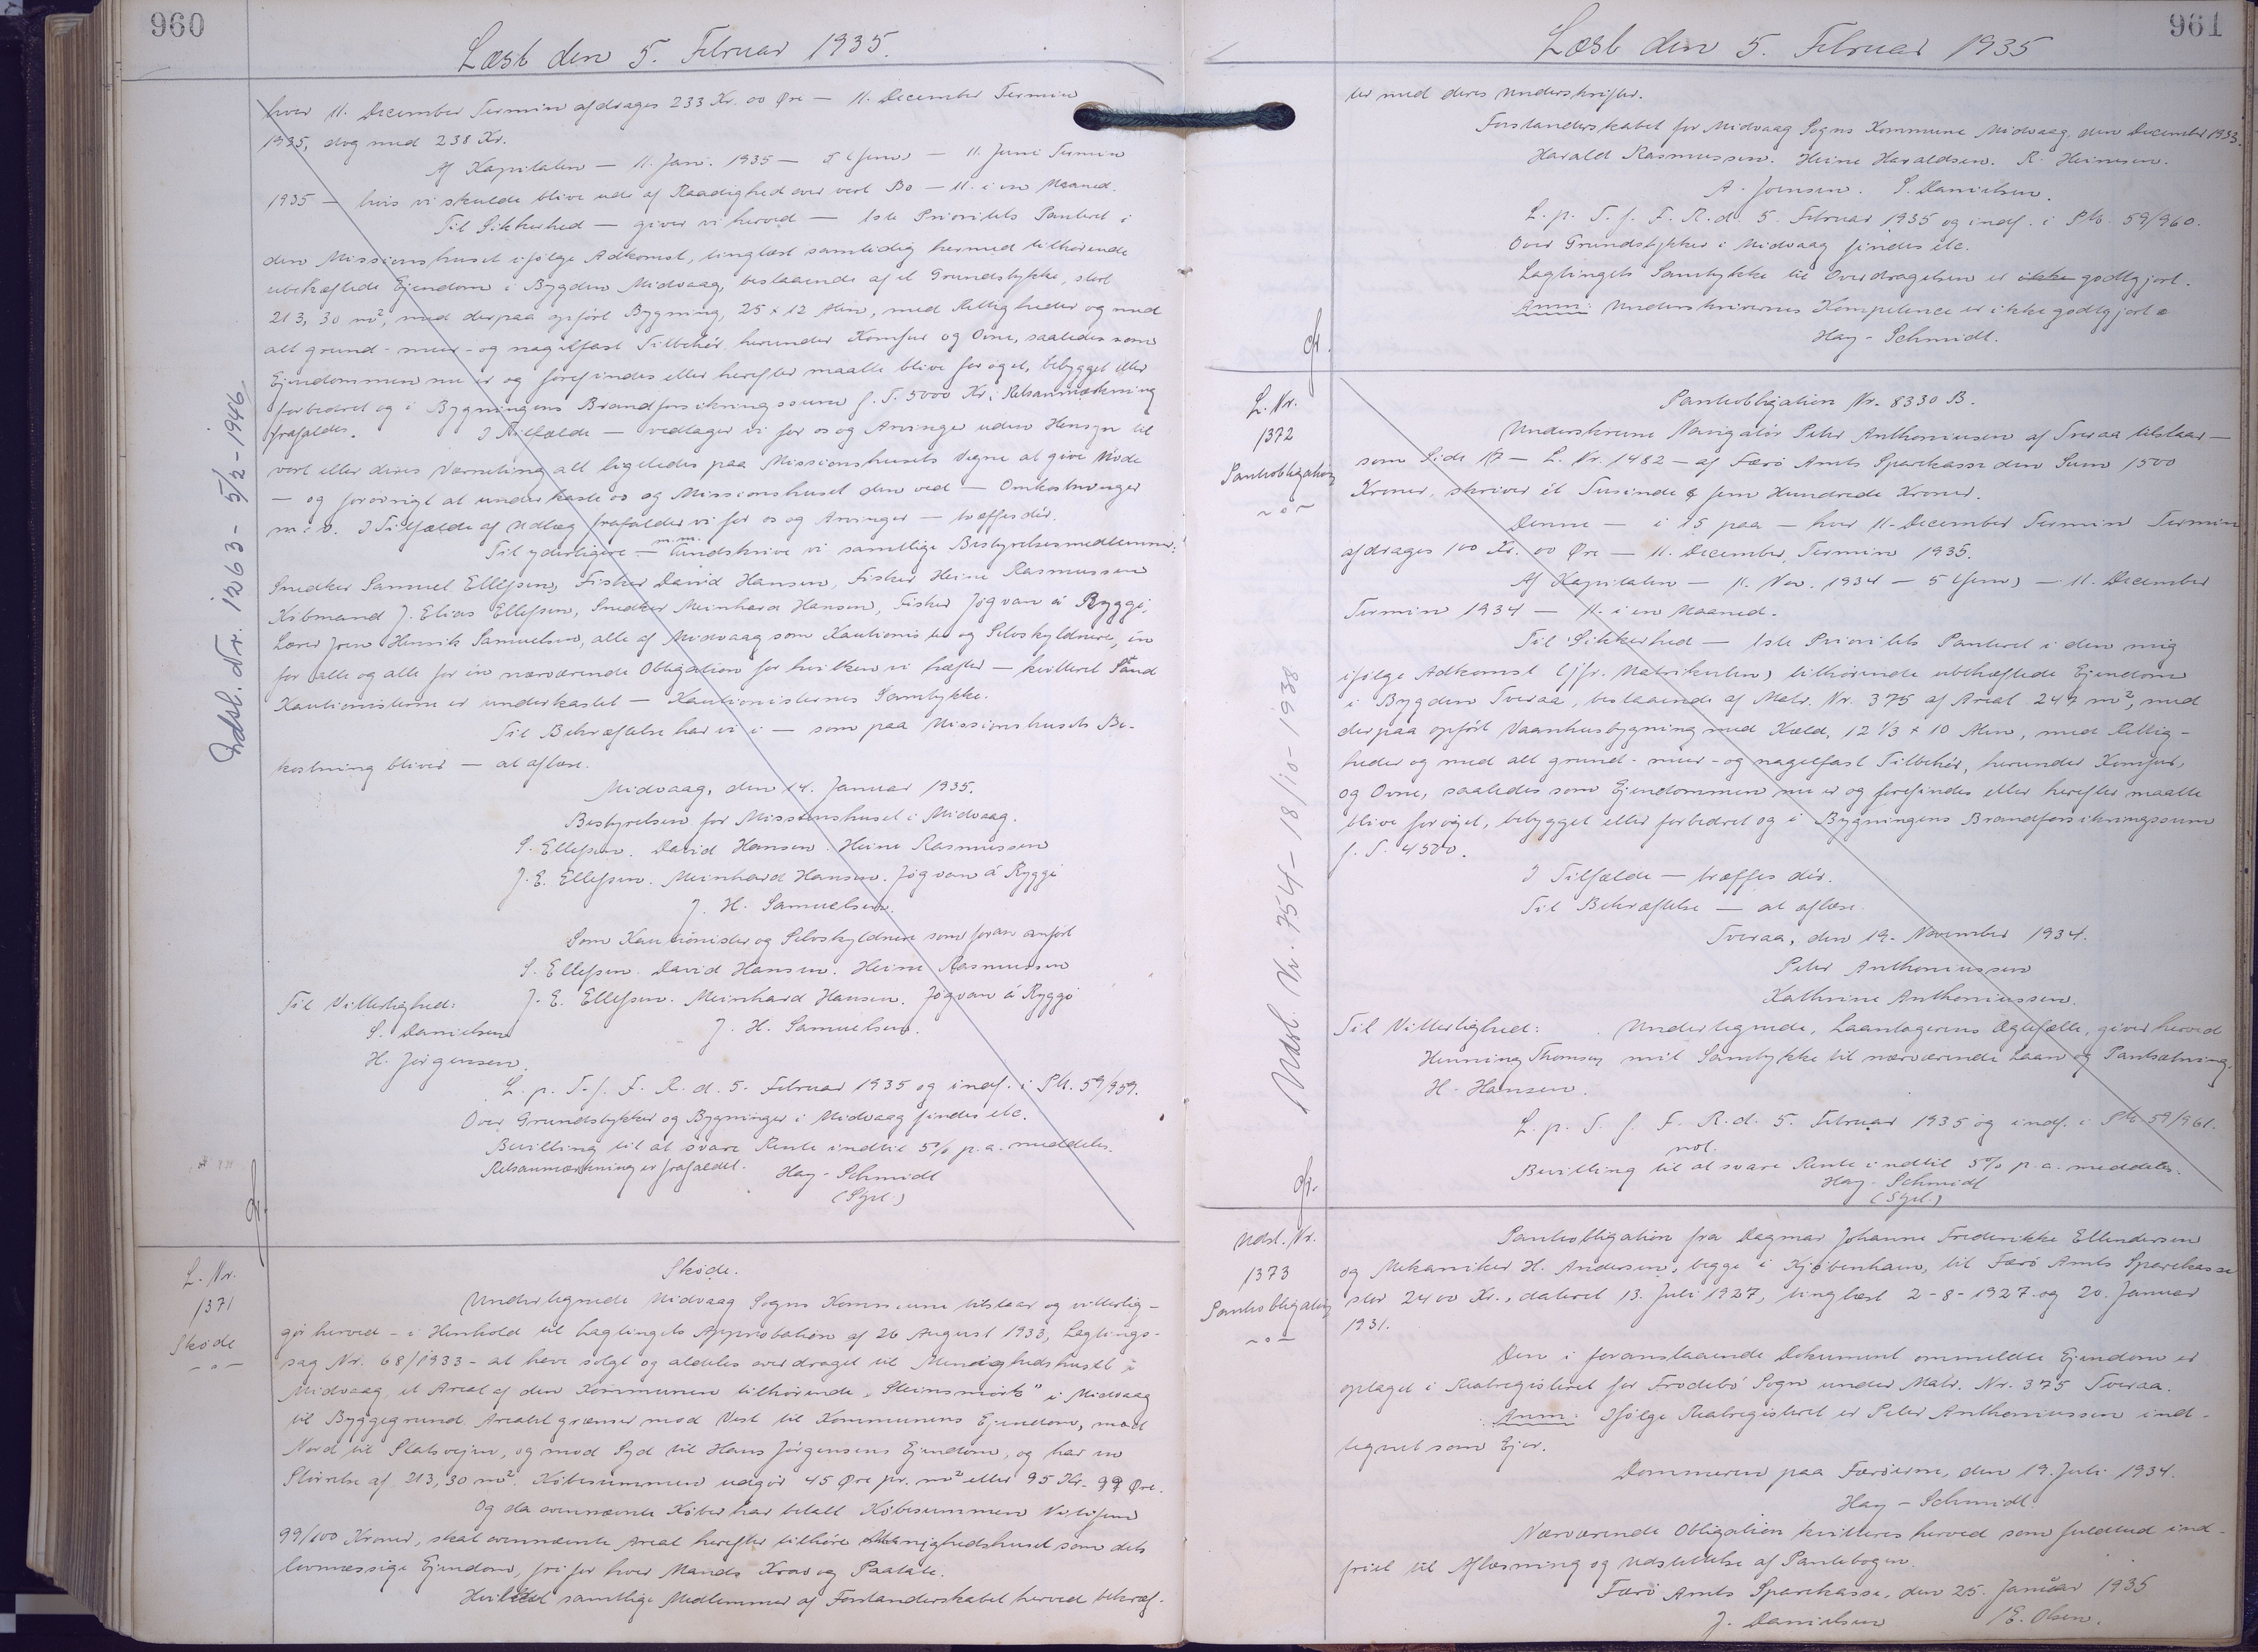 960
Læst den 5. Februar 1935.
hver 11. December Termin afdrages 233 Kr. 00 Øre — 11. December Termin
1935, dog med 238 Kr.
Af Kapitalen — 11. Jan. 1935 — 5 (fem) — 11. Juni Termin
1935 — hvis vi skulde blive ude af Raadighed over vort Bo — 11. i en Maaned.
Til Sikkerhed — giver vi herved — 1ste Prioritets Panteret i
den Missionshuset ifølge Adkomst, tinglæst samtidig hermed tilhørende
ubehæftede Ejendom i Bygden Midvaag, bestaaende af et Grundstykke, stort
213,30 m², med derpaa opført Bygning, 25 x 12 Alen, med Rettigheder og med
alt grund- mur- og nagelfast Tilbehør herunder Komfur og Ovne, saaledes som
Ejendommen nu er og forefindes eller herefter maatte blive forøget, bebygget eller
forbedret og i Bygningens Brandforsikringssum f. T. 5000 Kr; Retsanmærkning
frafaldes. I Tilfælde — vedtager vi for os og Arvinger uden Hensyn til
vort eller deres Værneting at ligeledes paa Missionshusets Vegne at give Møde
— og forøvrigt at underkaste os og Missionshuset den ved — Omkostninger
m. v. I Tilfælde af Udlæg frafalder vi for os og Arvinger — træffes dér.
Til yderligere — m.m. Undskrive vi samtlige Bestyrelsesmedlemmer:
Snedker Samuel Ellefsen, Fisker David Hansen, Fisker Heine Rasmussen
Købmand J. Elias Ellefsen, Snedker Meinhard Hansen, Fisker Jógvan á Ryggi,
Lærer Jens Henrik Samuelsen, alle af Midvaag som Kautionister og Selvskyldnere, én
for alle og alle for én nærværende Obligation for hvilken vi hæfter — kvitteret Stand
Kautionisterne er underkastet — Kautionisternes Samtykke.
Til Bekræftelse har vi i — som paa Missionshusets Be-
kostning bliver — at aflæse.
Midvaag, den 14. Januar 1935.
Bestyrelsen for Missionshuset i Midvaag.
S. Ellefsen. David Hansen. Heine Rasmussen
J. E. Ellefsen. Meinhard Hansen. Jógvan á Ryggi
J. H. Samuelsen.
Som Kautionister og Selvskyldnere som foran anført
S. Ellefsen. David Hansen. Heine Rasmussen
Til Vitterlighed: J. E. Ellefsen. Meinhard Hansen. Jógvan á Ryggi
S. Danielsen J. H. Samuelsen.
H. Jørgensen.
L. p. T. f. F. R. d. 5. Februar 1935 og indf. i Ptb. 59/959.
Over Grundstykker og Bygninger i Midvaag findes etc.
Bevilling til at svare Rente indtil 5% p. a. meddeles.
Retsanmærkning er frafaldet. Hay-Schmidt
(Sgel.)
Udsl. Nr. 1263 - 5/2 - 1946
L. Nr.
1371
Skøde
Skøde.
Undertegnede Midvaag Sogns Kommune tilstaar og vitterlig-
gør herved - i Henhold til Lagtingets Approbation af 26 August 1933, Lagtings-
sag Nr. 68/1933 - at have solgt og aldeles overdraget til Menighedshuset i
Midvaag, et Areal af den Kommunen tilhørende "Steinsmørk" i Midvaag
til Byggegrund. Arealet grænser mod Vest til Kommunens Ejendom, mod
Nord til Statsvejen, og mod Syd til Hans Jørgensens Ejendom, og har en
Størrelse af 213,30 m². Købesummen udgør 45 Øre pr. m² eller 95 Kr. 99 Øre.
Og da ovennævnte Køber har betalt Købesummen Nitifem
99/100 Kroner, skal ovennævnte Areal herefter tilhøre Menighedshuset som dets
lovmæssige Ejendom, fri for hver Mands Krav og Paatale.
Hvilket samtlige Medlemmer af Forstanderskabet herved bekræf-
961
Læst den 5. Februar 1935
ter med deres Underskrifter.
Forstanderskabet for Midvaag Sogns Kommune Midvaag, den December 1933.
Harald Rasmussen. Heine Haraldsen. R. Heinesen.
A. Joensen. S. Danielsen.
L. p. T. f. F. R. d. 5. Februar 1935 og indf. i Ptb. 59/960.
Over Grundstykker i Midvaag findes etc.
Lagtingets Samtykke til Overdragelsen er ikke godtgjort.
Anm: Underskrivernes Kompetence er ikke godtgjort
Hay-Schmidt.
L. Nr.
1372
Pantobligation
Pantobligation Nr. 8330 B.
Underskrevne Navigatør Peter Anthoniussen af Tveraa tilstaar —
som Side 17 — L. Nr. 1482 — af Færø Amts Sparekasse den Sum 1500
Kroner, skriver ét Tusinde & fem Hundrede Kroner.
Denne — i 15 paa — hver 11. December Termin Termin
afdrages 100 Kr. 00 Øre — 11. December Termin 1935.
Af Kapitalen — 11. Nov. 1934 — 5 (fem) — 11. December
Termin 1934 — 11. i en Maaned.
Til Sikkerhed — 1ste Prioritets Panteret i den mig
ifølge Adkomst (jfr. Matrikulen) tilhørende ubehæftede Ejendom
i Bygden Tveraa, bestaaende af Matr. Nr. 375 af Areal 247 m², med
derpaa opført Vaanhusbygning med Kæld, 12 1/3 x 10 Alen, med Rettig-
heder og med alt grund- mur- og nagelfast Tilbehør, herunder Komfur,
og Ovne, saaledes som Ejendommen nu er og forefindes eller herefter maatte
blive forøget, bebygget eller forbedret og i Bygningens Brandforsikringssum
f. T. 4500.
I Tilfælde — træffes dér.
Til Bekræftelse — at aflæse.
Tveraa, den 19. November 1934.
Peter Anthoniussen
Kathrine Anthoniussen.
Til Vitterlighed: Undertegnede, Laantagerens Ægtefælle, giver herved
Henning Thomsen mit Samtykke til nærværende Laan og Pantsætning.
H. Hansen.
L. p. T. f. F. R. d. 5. Februar 1935 og indf. i Ptb 59/961.
not.
Bevilling til at svare Rente indtil 5% p. a. meddeles.
Hay-Schmidt
(Sgel.)
Udsl. Nr. 754 - 18/10 - 1938
Udsl. Nr.
1373
Pantobligation
Pantobligation fra Dagmar Johanne Frederikke Ellendersen
og Mekaniker H. Andersen, begge i Kjøbenhavn, til Færø Amts Sparekasse
stor 2400 Kr., dateret 13. Juli 1927, tinglæst 2-8-1927 og 20. Januar
1931.
Den i foranstaaende Dokument ommeldte Ejendom er
optaget i Realregisteret for Frodebø Sogn under Matr. Nr. 375 Tveraa.
Anm: Ifølge Realregisteret er Peter Anthoniussen ind-
tegnet som Ejer.
Dommeren paa Færøerne, den 19. Juli 1934.
Hay-Schmidt.
Nærværende Obligation kvitteres herved som fuldtud ind-
friet til Aflæsning og Udslettelse af Pantebogen.
Færø Amts Sparekasse, den 25. Januar 1935
J. Danielsen /E. Olsen.